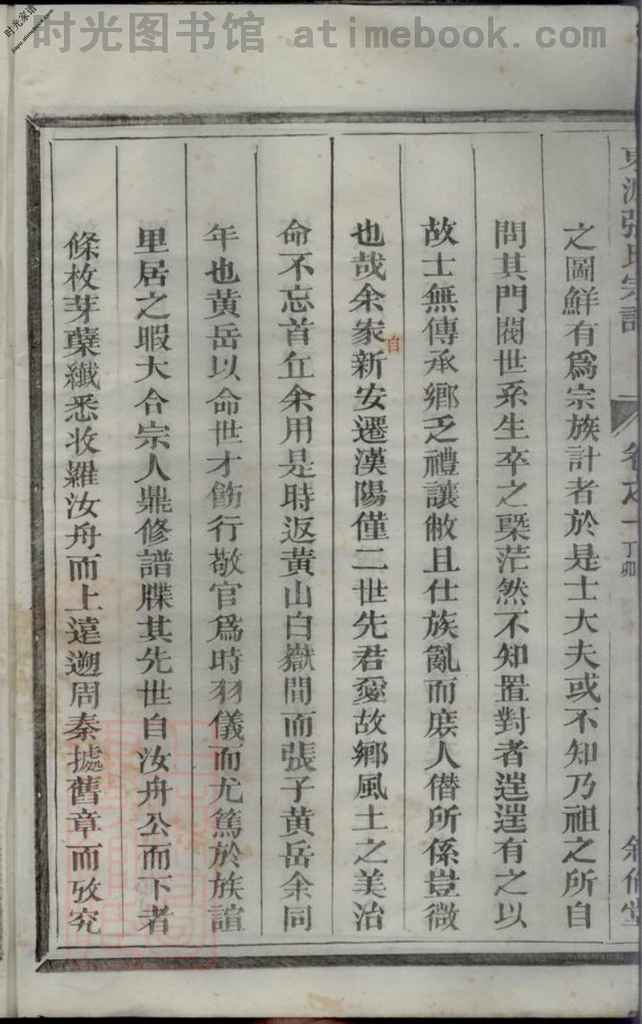 时光图书馆 atimebook.com
之圖鮮有爲宗族計者於是士大夫或不知乃祖之所自
問其門閥世系生卒之槩茫然不知置對者逞逞有之以
故士無傳承鄉乏禮讓敝且仕族亂而庻人僣所係豈微
也哉余家自新安遷漢陽僅二世先君愛故鄉風土之美治
命不忘首丘余用是時返黄山白嶽間而張子黄岳余同
年也黄岳以命世才飭行敬官爲時羽儀而尤篤於族誼
里居之暇大合宗人鼎修譜牒其先世自汝舟公而下者
條枚芽蘖纖悉收羅汝舟而上遠遡周秦據舊章而攷究
丁卯